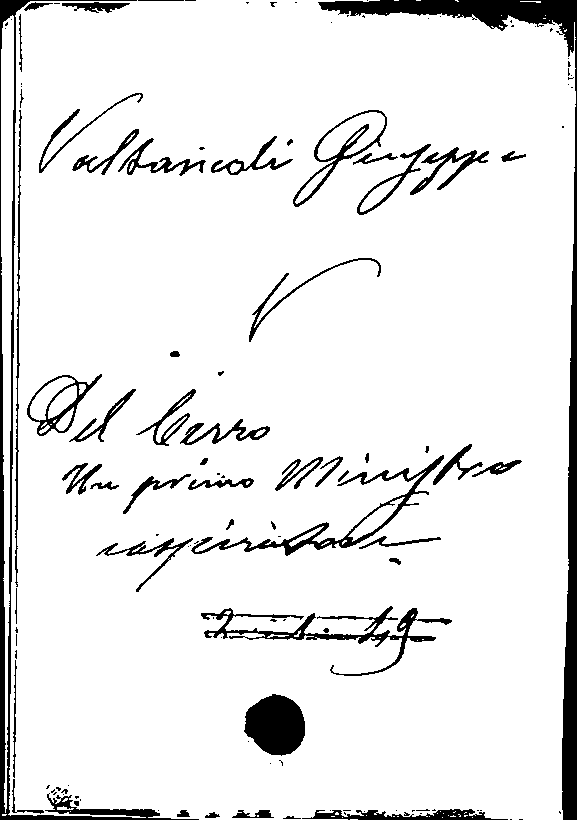 Valtancoli Giuseppe
V
Del Cerro
Un primo Ministro
cospiratore